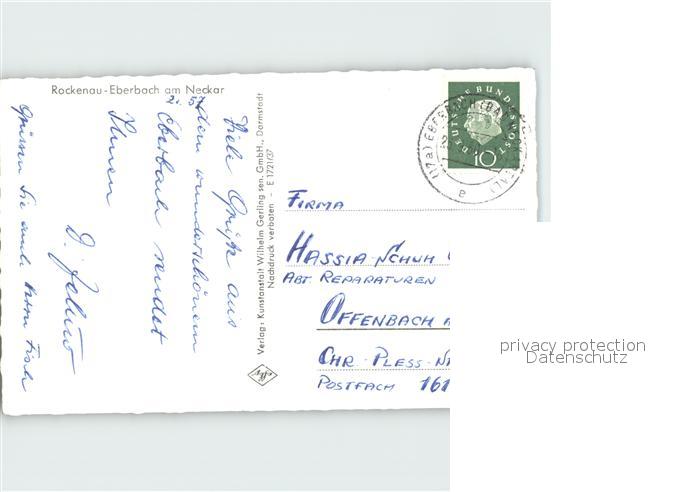 Rockenau-Eberbach am Neckar
Viele Grüße aus
dem wunderschönen
Eberbach sendet
Ihnen
Grüssen Sie auch Herrn
Verlag: Kunstanstalt Wilhelm Gerling sen. GmbH., Darmstadt
Nachdruck verboten - E 1721/37
DEUTSCHE BUNDESPOST
10
(17a) EBERBACH (BA
a
FIRMA
HASSIA-SCHUH
ABT REPARATUREN
OFFENBACH
CHR. PLESS-
POSTFACH 161
privacy protection
Datenschutz